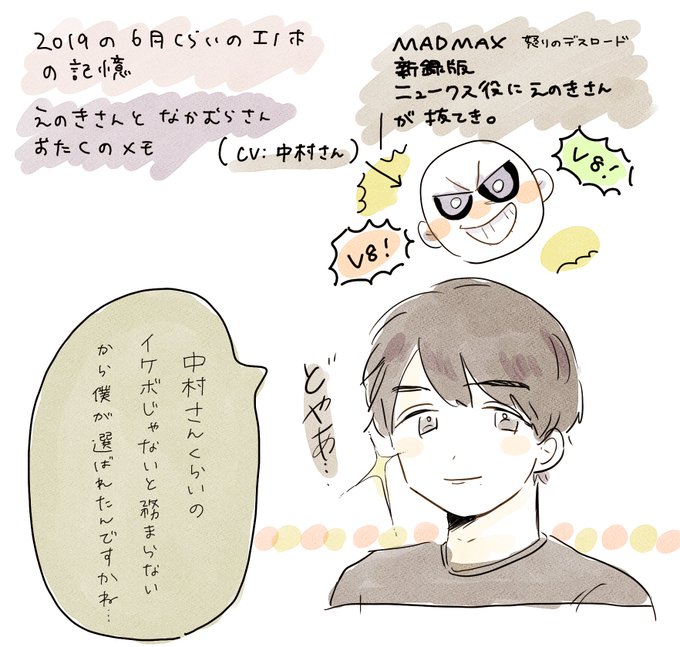 2019の6月くらいのエノホ
の記憶
えのきさんと なかむらさん
おたくのメモ
MADMAX 怒りのデスロード
新録版
ニュークス役に えのきさん
が 抜てき。
(CV: 中村さん)
V8!
V8!
どやあ…
中村さんくらいの
イケボじゃないと務まらない
から僕が選ばれたんですかね…